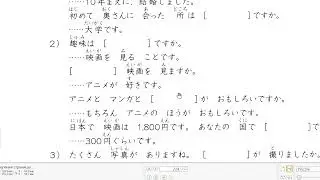 ……10年まえに、結婚しました。
初めて 奥さんに 会った 所は [ ]ですか。
……大学です。
2) 趣味は [ ]ですか。
……映画を 見る ことです。
[ ] 映画を 見ますか。
……アニメが 好きです。
アニメと マンガと [ き ]が おもしろいですか。
……もちろん アニメの ほうが おもしろいです。
日本で 映画は 1,800円です。 あなたの 国で [ ]
……300円ぐらいです。
3) たくさん 写真が ありますね。 [ ]が 撮りましたか。